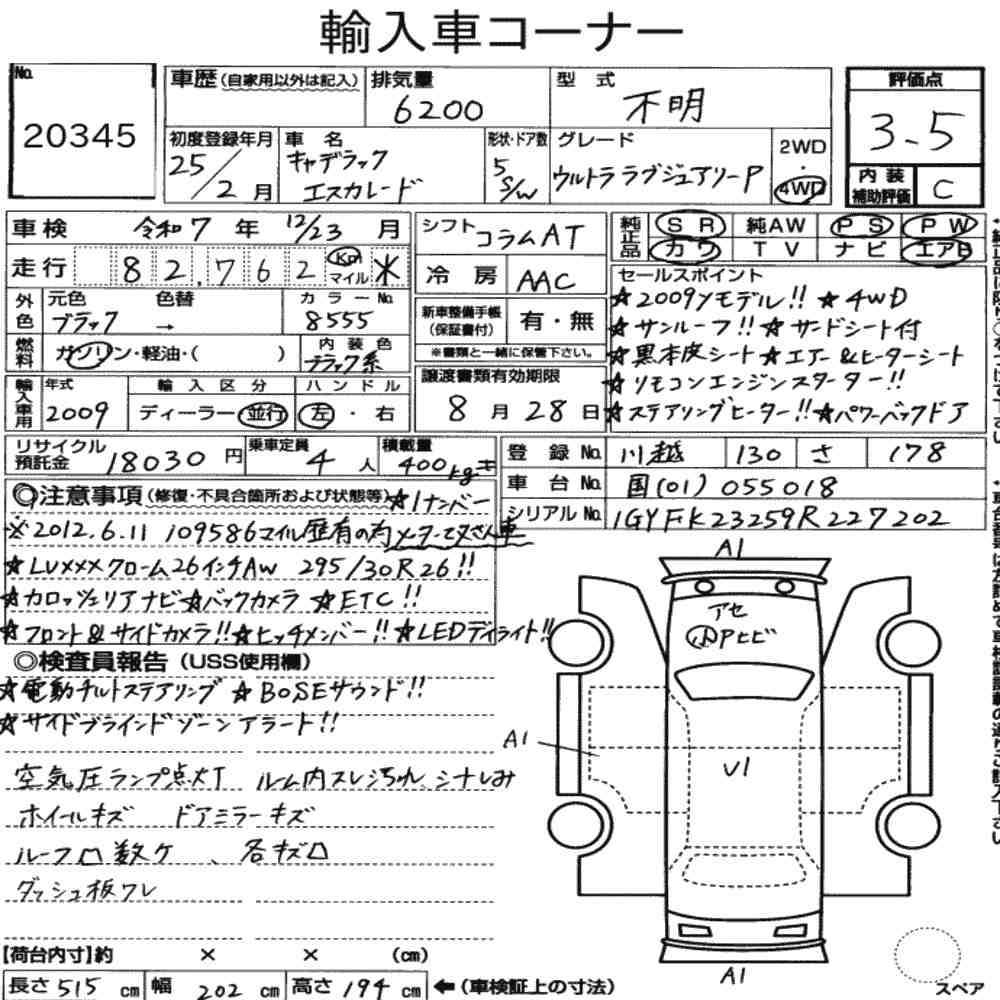 輸入車コーナー
No.
20345
車歴(自家用以外は記入) 排気量 6200 型式 不明
初度登録年月 25/2月 車名 キャデラック エスカレード 形状・ドア数 5 S/W グレード ウルトララグジュアリーP 2WD・4WD
評価点
3.5
内装補助評価 C
車検 令和7年12/23月
走行 82,762 Km マイル ※
外色 元色 ブラック 色替 → カラーNo. 8555
燃料 ガソリン・軽油・( ) 内装色 ブラック系
輸入車用 年式 2009 輸入区分 ディーラー・並行 ハンドル 左・右
シフト コラムAT
冷房 AAC
新車整備手帳(保証書付) 有・無
※書類と一緒に保管下さい。
譲渡書類有効期限
8月28日
純正品 SR 純AW PS PW
カワ TV ナビ エアB
セールスポイント
☆2009Yモデル!! ☆4WD
☆サンルーフ!! ☆サードシート付
☆黒本皮シート☆エアー&ヒーターシート
☆リモコンエンジンスターター!!
☆ステアリングヒーター!!☆パワーバックドア
リサイクル預託金 18030円 乗車定員 4人 積載量 400kg
登録No. 川越 130 さ 178
車台No. 国(01)055018
シリアルNo. 1GYFK23259R227202
◎注意事項(修復・不具合箇所および状態等)☆1ナンバー
※2012.6.11 109586マイル歴有の為メーター改ざん車
☆LUXXXクローム26インチAW 295/30R26!!
☆カロッツェリアナビ☆バックカメラ ☆ETC!!
☆フロント&サイドカメラ!!☆ヒッチメンバー!!☆LEDデイライト!!
◎検査員報告(USS使用欄)
☆電動チルトステアリング ☆BOSEサウンド!!
☆サイドブラインドゾーンアラート!!
空気圧ランプ点灯 ルーム内スレ汚れ、シナレみ
ホイールキズ ドアミラーキズ
ルーフ凹数ケ、各キズ凹
ダッシュ板ワレ
A1
アセ
小Pヒビ
A1
U1
A1
【荷台内寸】約 × × (cm)
長さ515cm 幅202cm 高さ194cm ←(車検証上の寸法)
スペア